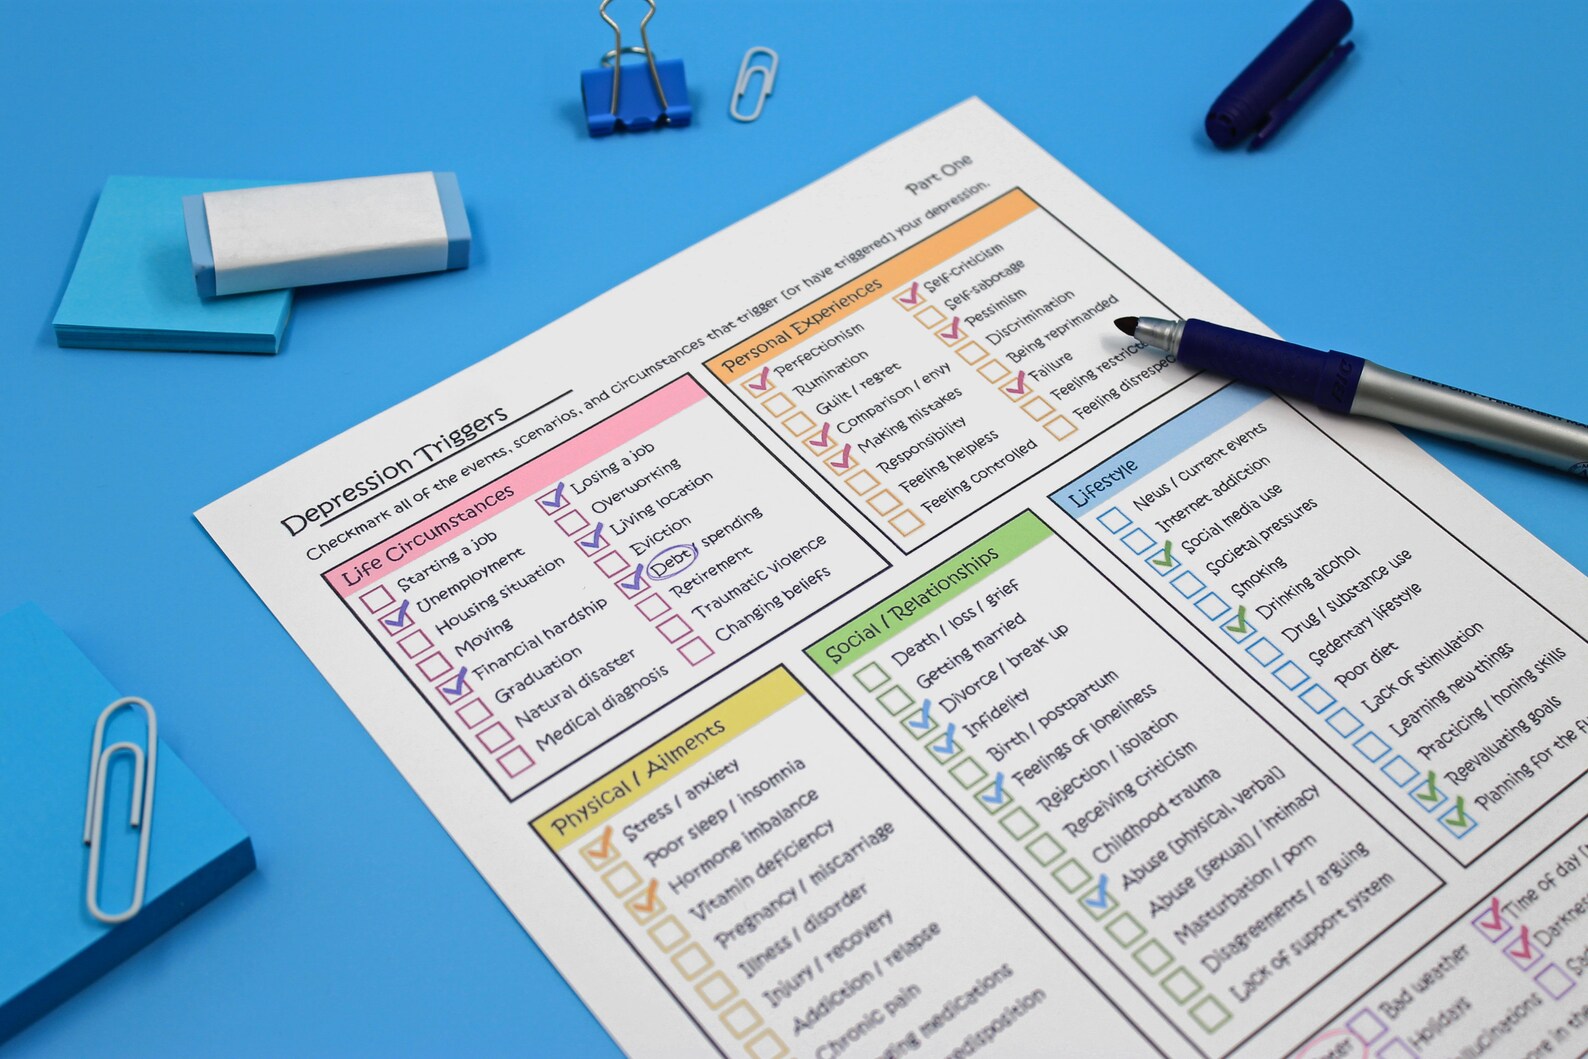 Part One
Depression Triggers
Checkmark all of the events, scenarios, and circumstances that trigger [or have triggered] your depression.
Life Circumstances
Starting a job
Unemployment
Housing situation
Moving
Financial hardship
Graduation
Natural disaster
Medical diagnosis
Losing a job
Overworking
Living location
Eviction
Debt / spending
Retirement
Traumatic violence
Changing beliefs
Personal Experiences
Perfectionism
Rumination
Guilt / regret
Comparison / envy
Making mistakes
Responsibility
Feeling helpless
Feeling controlled
Self-criticism
Self-sabotage
Pessimism
Discrimination
Being reprimanded
Failure
Feeling restric
Feeling disrespec
Physical / Ailments
Stress / anxiety
Poor sleep / insomnia
Hormone imbalance
Vitamin deficiency
Pregnancy / miscarriage
Illness / disorder
Injury / recovery
Addiction / relapse
Chronic pain
medications
Social / Relationships
Death / loss / grief
Getting married
Divorce / break up
Infidelity
Birth / postpartum
Feelings of loneliness
Rejection / isolation
Receiving criticism
Childhood trauma
Abuse [physical, verbal]
Abuse [sexual] / intimacy
Masturbation / porn
Disagreements / arguing
Lack of support system
Lifestyle
News / current events
Internet addiction
Social media use
Societal pressures
Smoking
Drinking alcohol
Drug / substance use
Sedentary lifestyle
Poor diet
Lack of stimulation
Learning new things
Practicing / honing skills
Reevaluating goals
Planning for the
Bad weather
Holidays
Time of day
Darkness
BIC